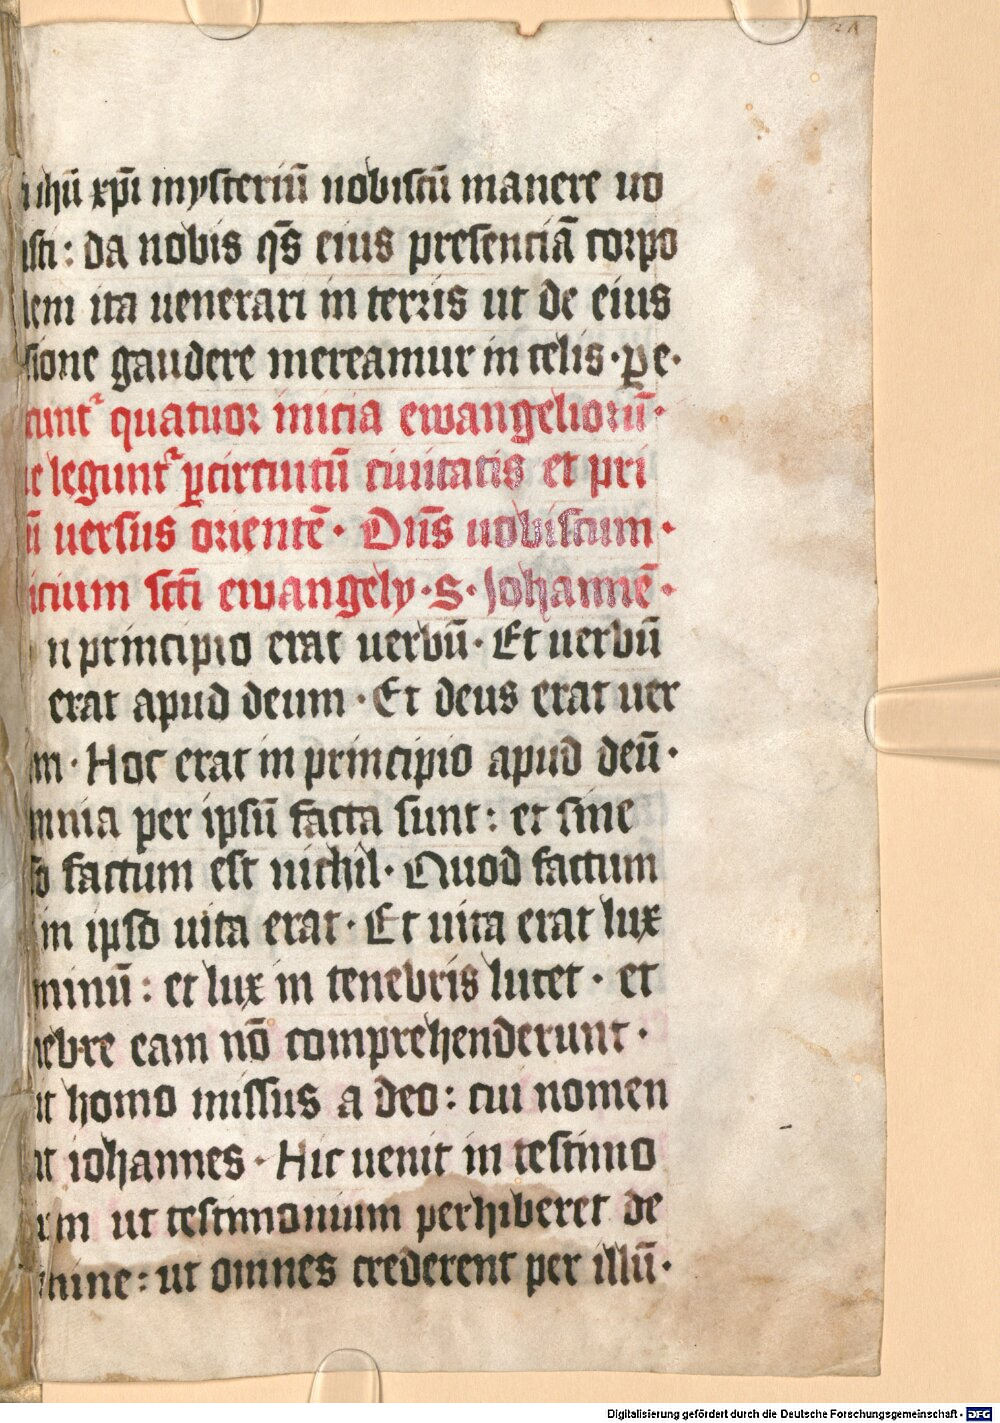 ihū xp̄i mysteriū nobiscū manere uo
isti: da nobis q̄s eius presenciā corpo
lem ita uenerari in terris ut de eius
sione gaudere mereamur in celis · ꝑ e·
cunt᷑ quatuor inicia ewangeliorū·
e legunt᷑ ꝑ circuitū ciuitatis et pri
ū uersus orientē · Dn̄s uobiscum ·
icium sc̄ti ewangely · S · Johannē ·
n principio erat uerbū · Et uerbū
erat apud deum · Et deus erat uer
m · Hoc erat in principio apud deū ·
mnia per ipsū facta sunt: et sine
so factum est nichil · Quod factum
in ipso uita erat · Et uita erat lux
minū: et lux in tenebris lucet · et
nebre eam nō comprehenderunt ·
it homo missus a deo: cui nomen
at iohannes · Hic uenit in testimo
um ut testimonium perhiberet de
mine: ut omnes crederent per illū ·
Digitalisierung gefördert durch die Deutsche Forschungsgemeinschaft - DFG